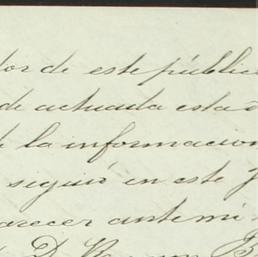 dor de este público
de actuada esta
la informacion
siguió en este
arecer ante mi
D. Ramon B